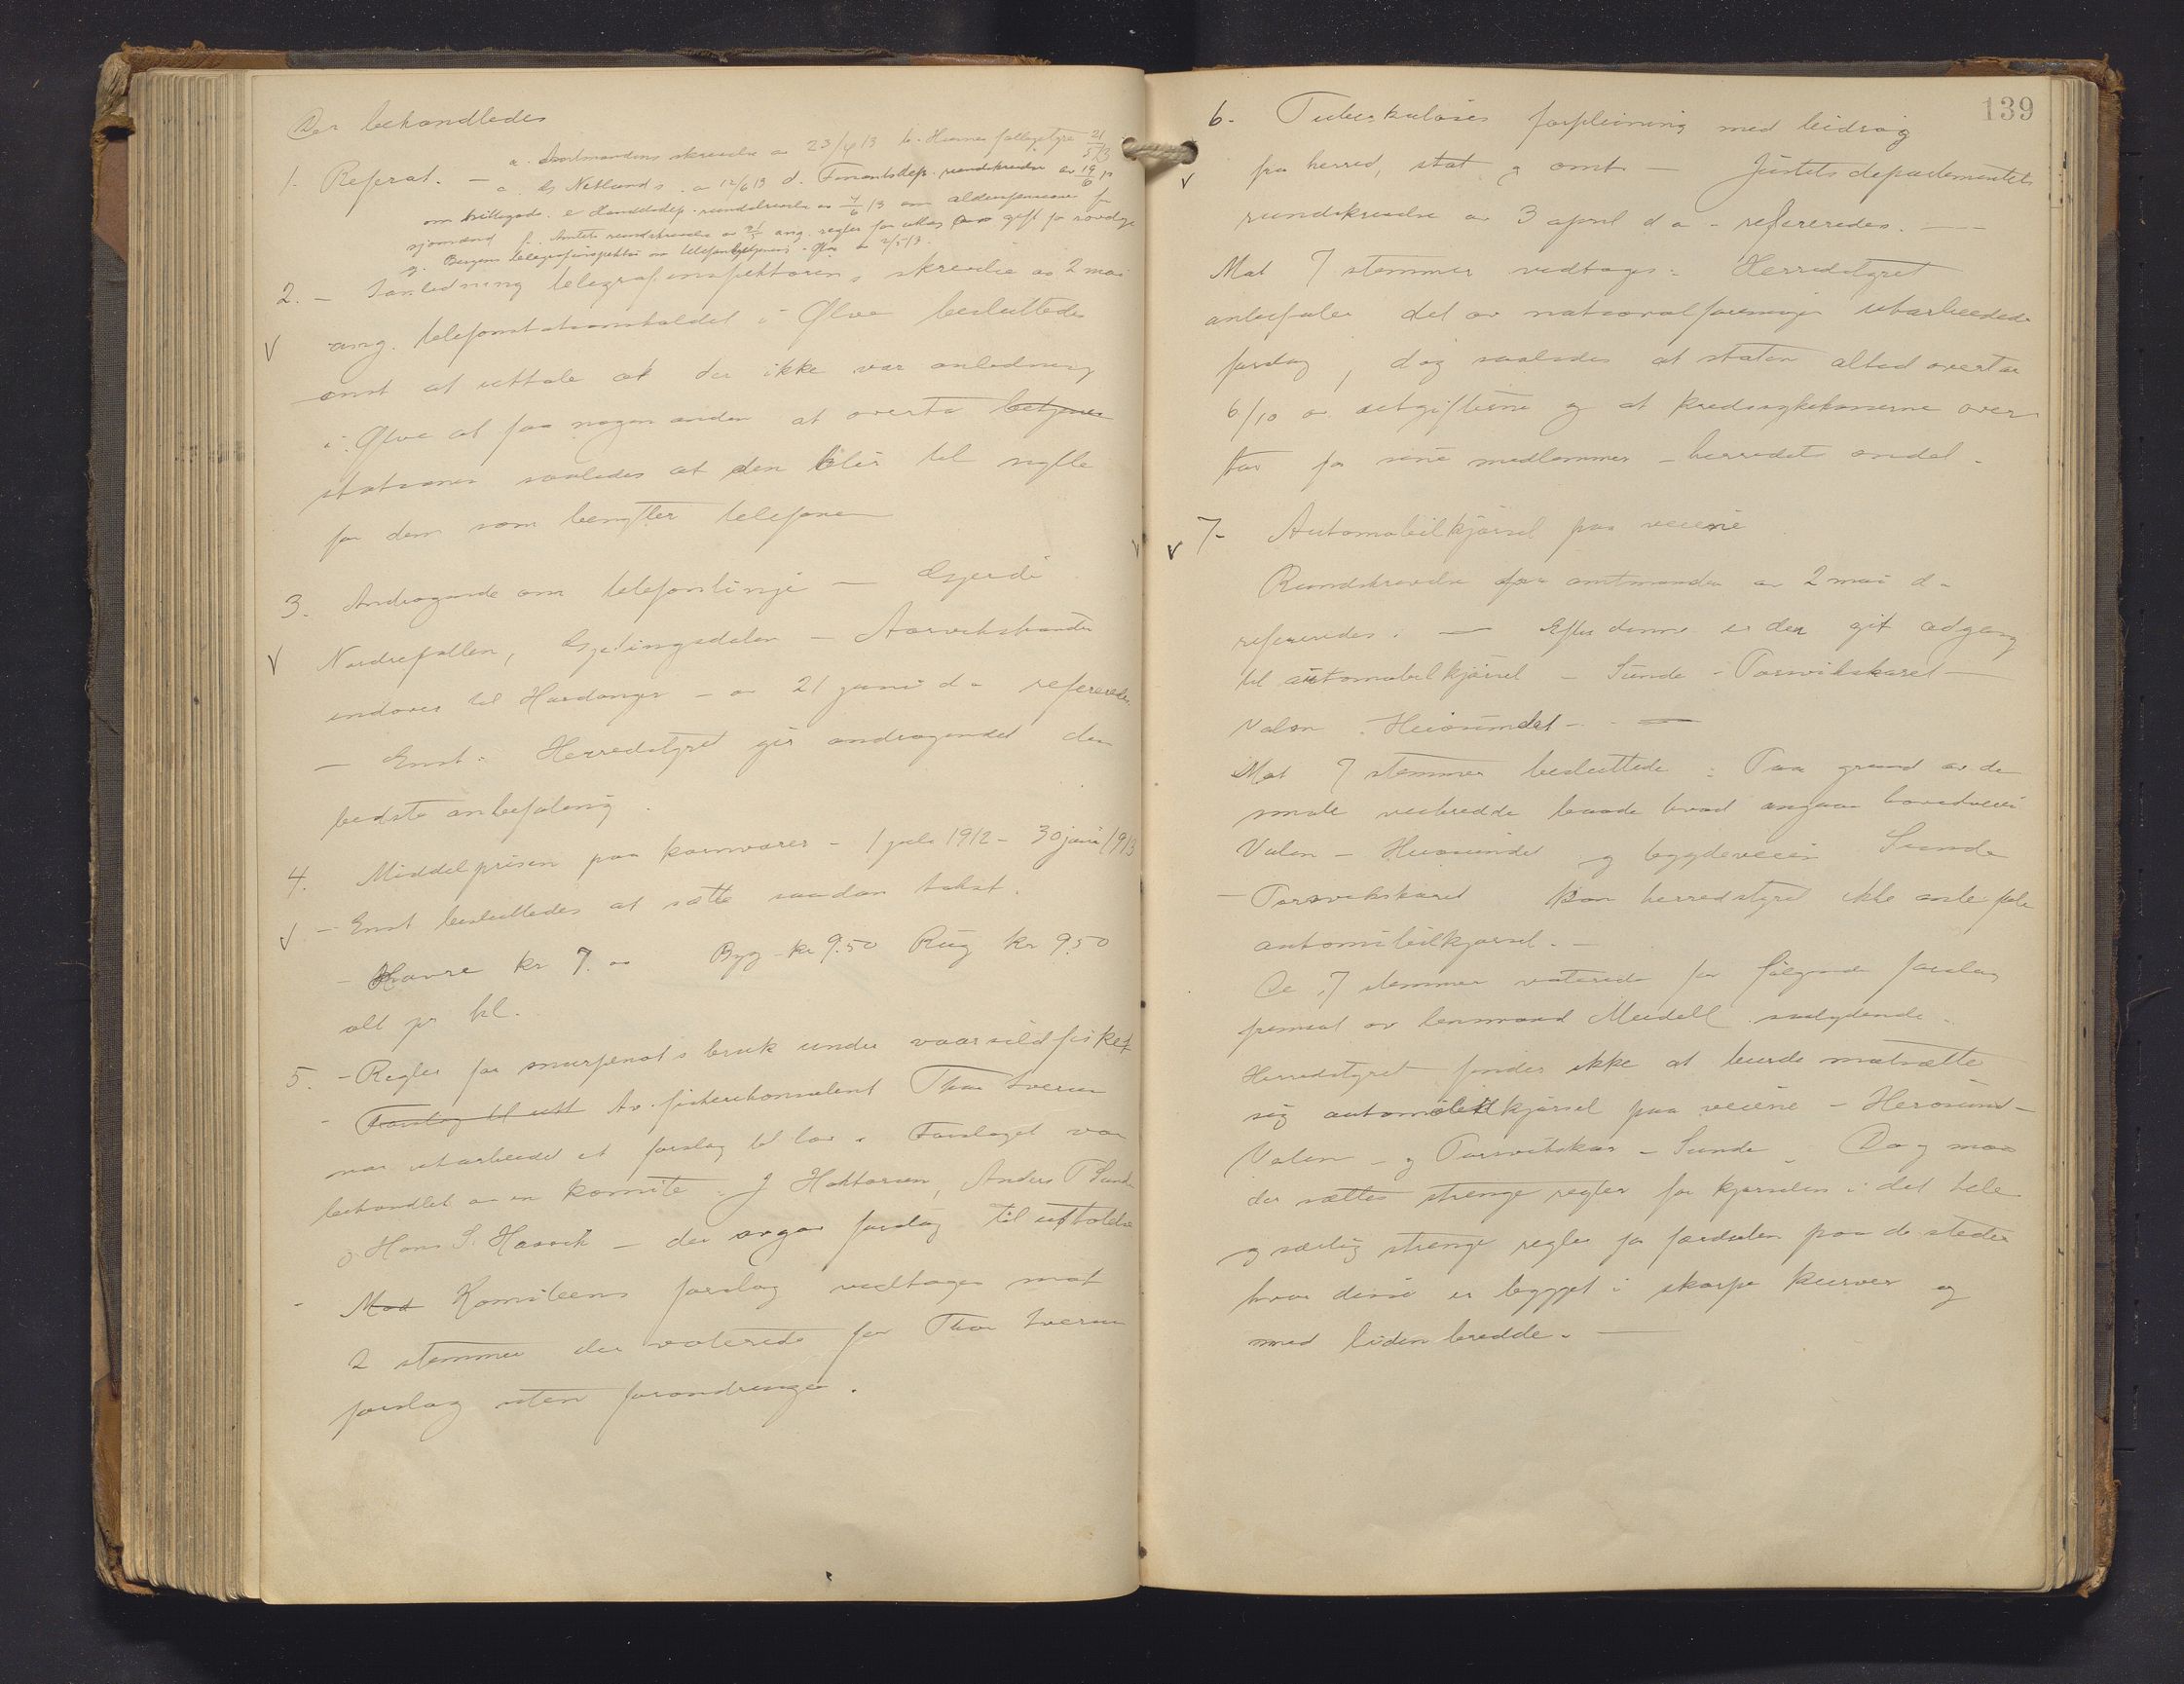 Der behandledes
1. Referat. — a. Amtmandens skrivelse av 23/4 13 b. Hernes fattigstyre 21/5 13
c. Netlands av 12/6 13 d. Finantsdep. rundskrivelse av 19/6 13
om e Handelsdep. rundskrivelse av 7/6 13 om alderspensioner for
sjømænd f. Amtets rundskrivelse av ang. regler for gift for rovdyr
g. Bergens telegrafinspektør om Ølve av 2/5 13.
2. — I anledning telegrafinspektørens skrivelse av 2 mai
ang. telefonstationsholdet i Ølve besluttedes
enst at uttale at der ikke var anledning
i Ølve at faa nogen anden at overta betjenes
stationen saaledes at den blir til nytte
for dem som benytter telefonen
3. Andragende om telefonlinje — Gjerde
Nordrepollen, Gjetingsdalen — Aarvikstranden
indover til Hardanger — av 21 juni d a refereredes
— Enst: Herredstyret gir andragendet den
bedste anbefaling.
4. Middelprisen paa kornvarer — 1 juli 1912 — 30 juni 1913
— Enst besluttedes at sætte saadan takst.
— Havre kr 7.00 Byg kr 9.50 Rug kr 9.50
alt pr hl.
5. — Regler for snurpenots bruk under vaarsildfisket
— Forslag til utt Av fiskerikonsulent Thor Iversen
var utarbeidet et forslag til lov. Forslaget var
behandlet av en komite: J Haktorsen, Anders T Sunde
og Hans S. Haavik — der avgav forslag til uttalelse
— Mod Komiteens forslag vedtages mot
2 stemmer der voterede for Thor Iversens
forslag uten forandringer.
139
6. Tuberkuløses forpleining med bidrag
fra herred, stat og amt — Justitsdepartementets
rundskrivelse av 3 april d a. refereredes. —
Mot 7 stemmer vedtages: Herredstyret
anbefaler det av nationalforeningen utarbeidede
forslag, dog saaledes at staten altid overtar
6/10 av utgifterne og at kredssykekasserne over
tar for sine medlemmer — herredets andel.
7. Automobilkjørsel paa veiene
Rundskrivelse fra amtmanden av 2 mai d a
refereredes. — Efter denne er der git adgang
til automobilkjørsel — Sunde — Porsvikskaret —
Valen — Herøsundet —
Mot 7 stemmer besluttede: Paa grund av den
smale veibredde baade hvad angaar hovedveien
Valen — Herøsundet og bygdeveien Sunde
— Porsvikskaret kan herredstyret ikke anbefale
automobilkjørsel. —
De 7 stemmer voterede for følgende forslag
fremsat av lensmand Meidell saalydende.
Herredstyret finder ikke at burde motsætte
sig automobilkjørsel paa veiene — Herøsund —
Valen — og Porsvikskar — Sunde. Dog maa
der sættes strenge regler for kjørselen i det hele
og særlig strenge regler for færdselen paa de steder
hvor disse er bygget i skarpe kurver og
med liden bredde. —